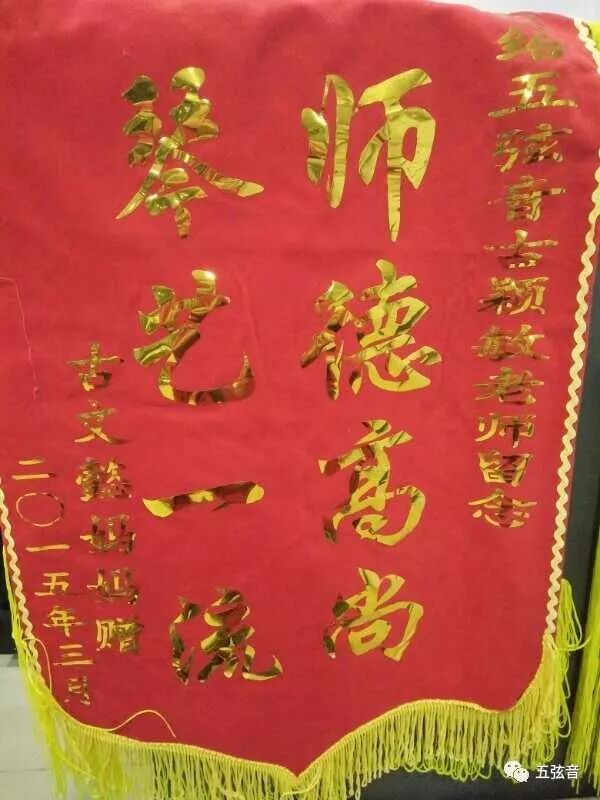 给五弦音古颖敏老师留念
师德高尚
琴艺一流
古文懿妈妈赠
二〇一五年三月
五弦音